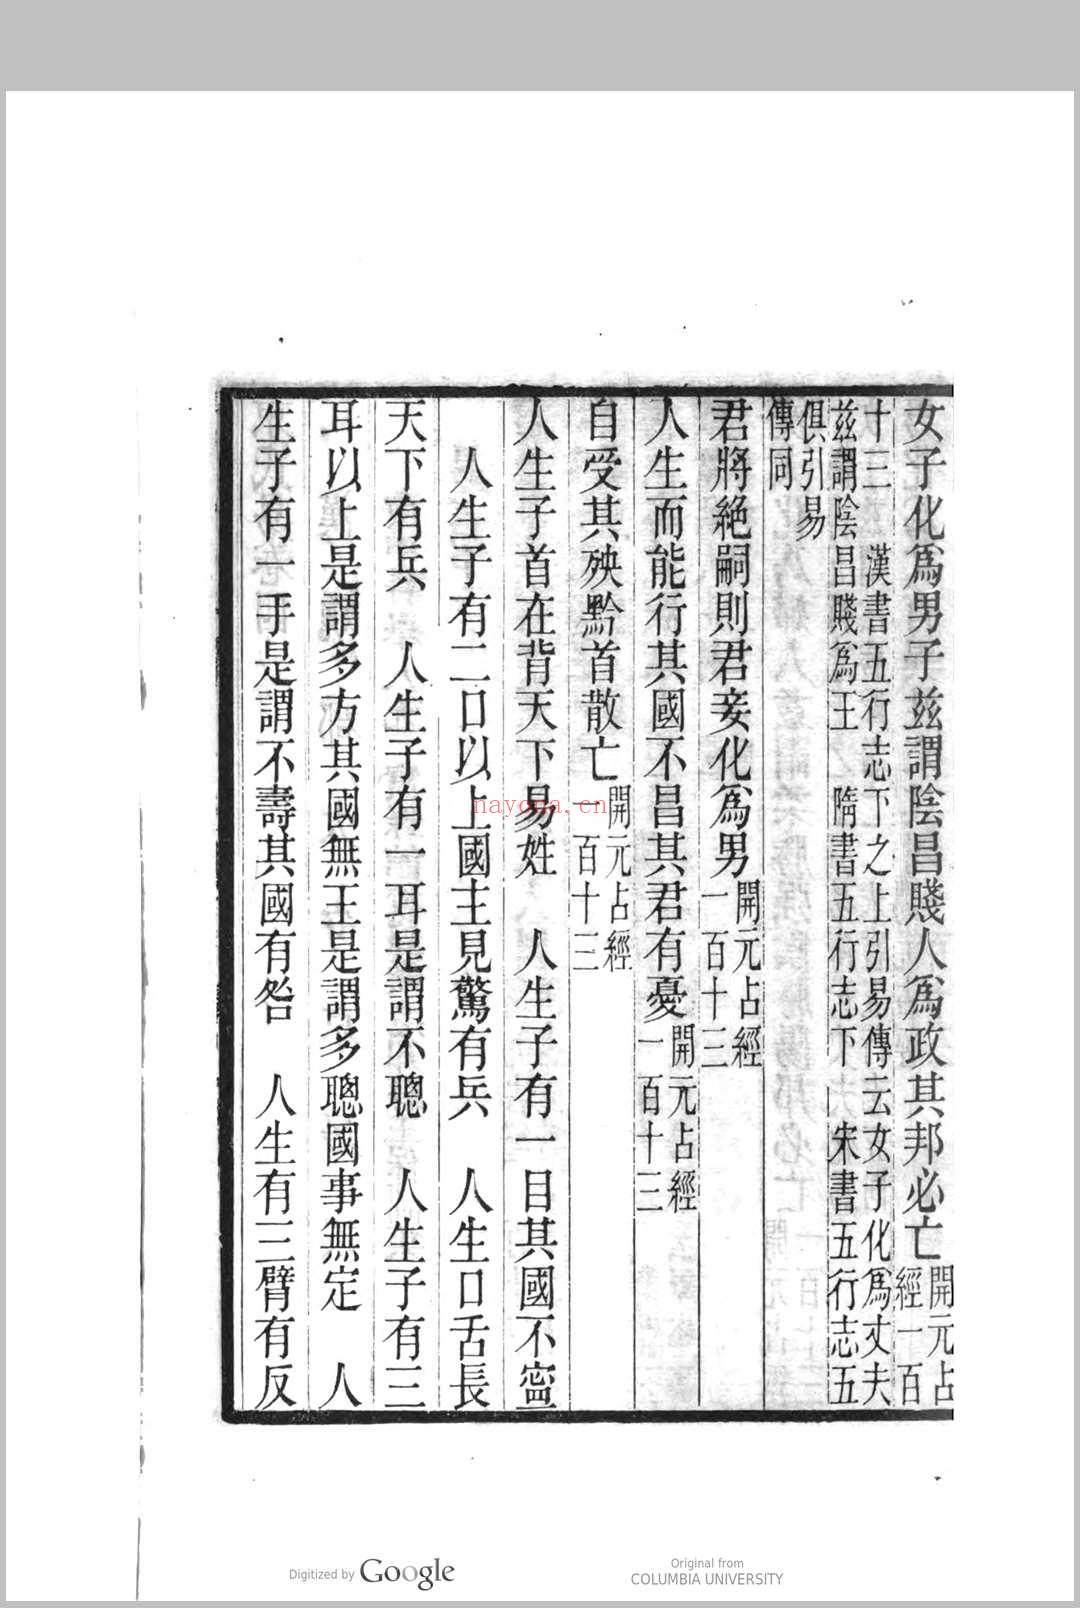 女子化爲男子兹謂陰昌賤人爲政其邦必亡開元占經一百
十三　漢書五行志下之上引易傳云女子化爲丈夫
兹謂陰昌賤爲王　隋書五行志下　宋書五行志五
俱引易
傳同
君將絶嗣則君妾化爲男開元占經一百十三
人生而能行其國不昌其君有憂開元占經一百十三
自受其殃黔首散亡開元占經一百十三
人生子首在背天下易姓　人生子有一目其國不寍
人生子有二口以上國主見驚有兵　人生口舌長
天下有兵　人生子有一耳是謂不聰　人生子有三
耳以上是謂多方其國無王是謂多聰國事無定　人
生子有一手是謂不壽其國有咎　人生有三臂有反
nayona.cn
Digitized by Google
Original from
COLUMBIA UNIVERSITY